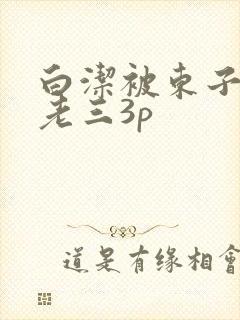 白潔被東子
老三3p
道是有缘相會